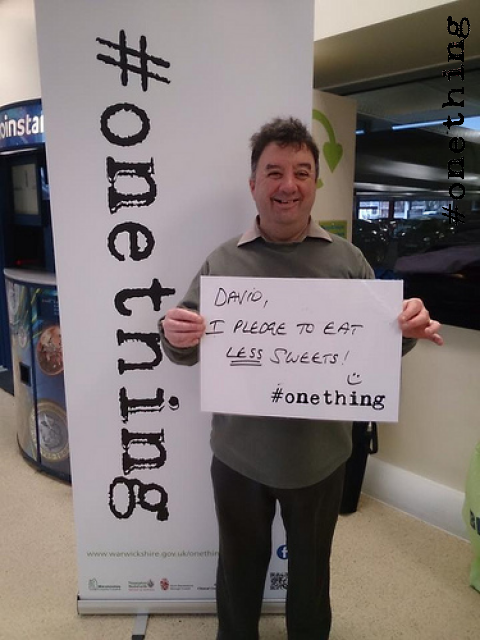 #onething
#onething
oinstar
DAVID,
I PLEDGE TO EAT
LESS SWEETS!
#onething
www.warwickshire.gov.uk/onethin
f